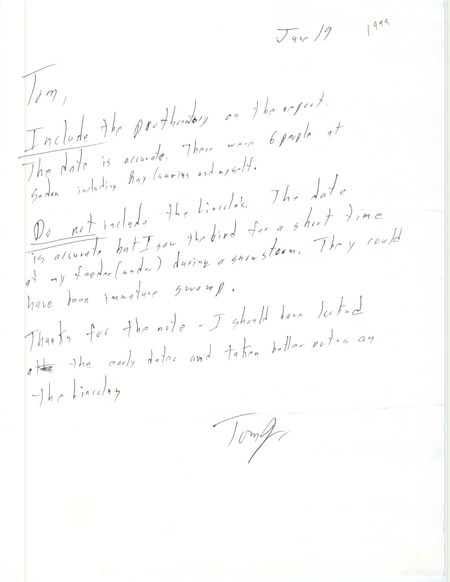 June 19 1999
Tom,
Include the prothonotary on the report.
The date is accurate. There were 6 people at
Sodan including Ray Cummins and myself.
Do not include the Lincoln's. The date
is accurate but I saw the bird for a short time
at my feeder (under) during a snowstorm. They could
have been immature swamp.
Thanks for the note - I should have
the early dates and taken better notes on
the Lincolns
Tom